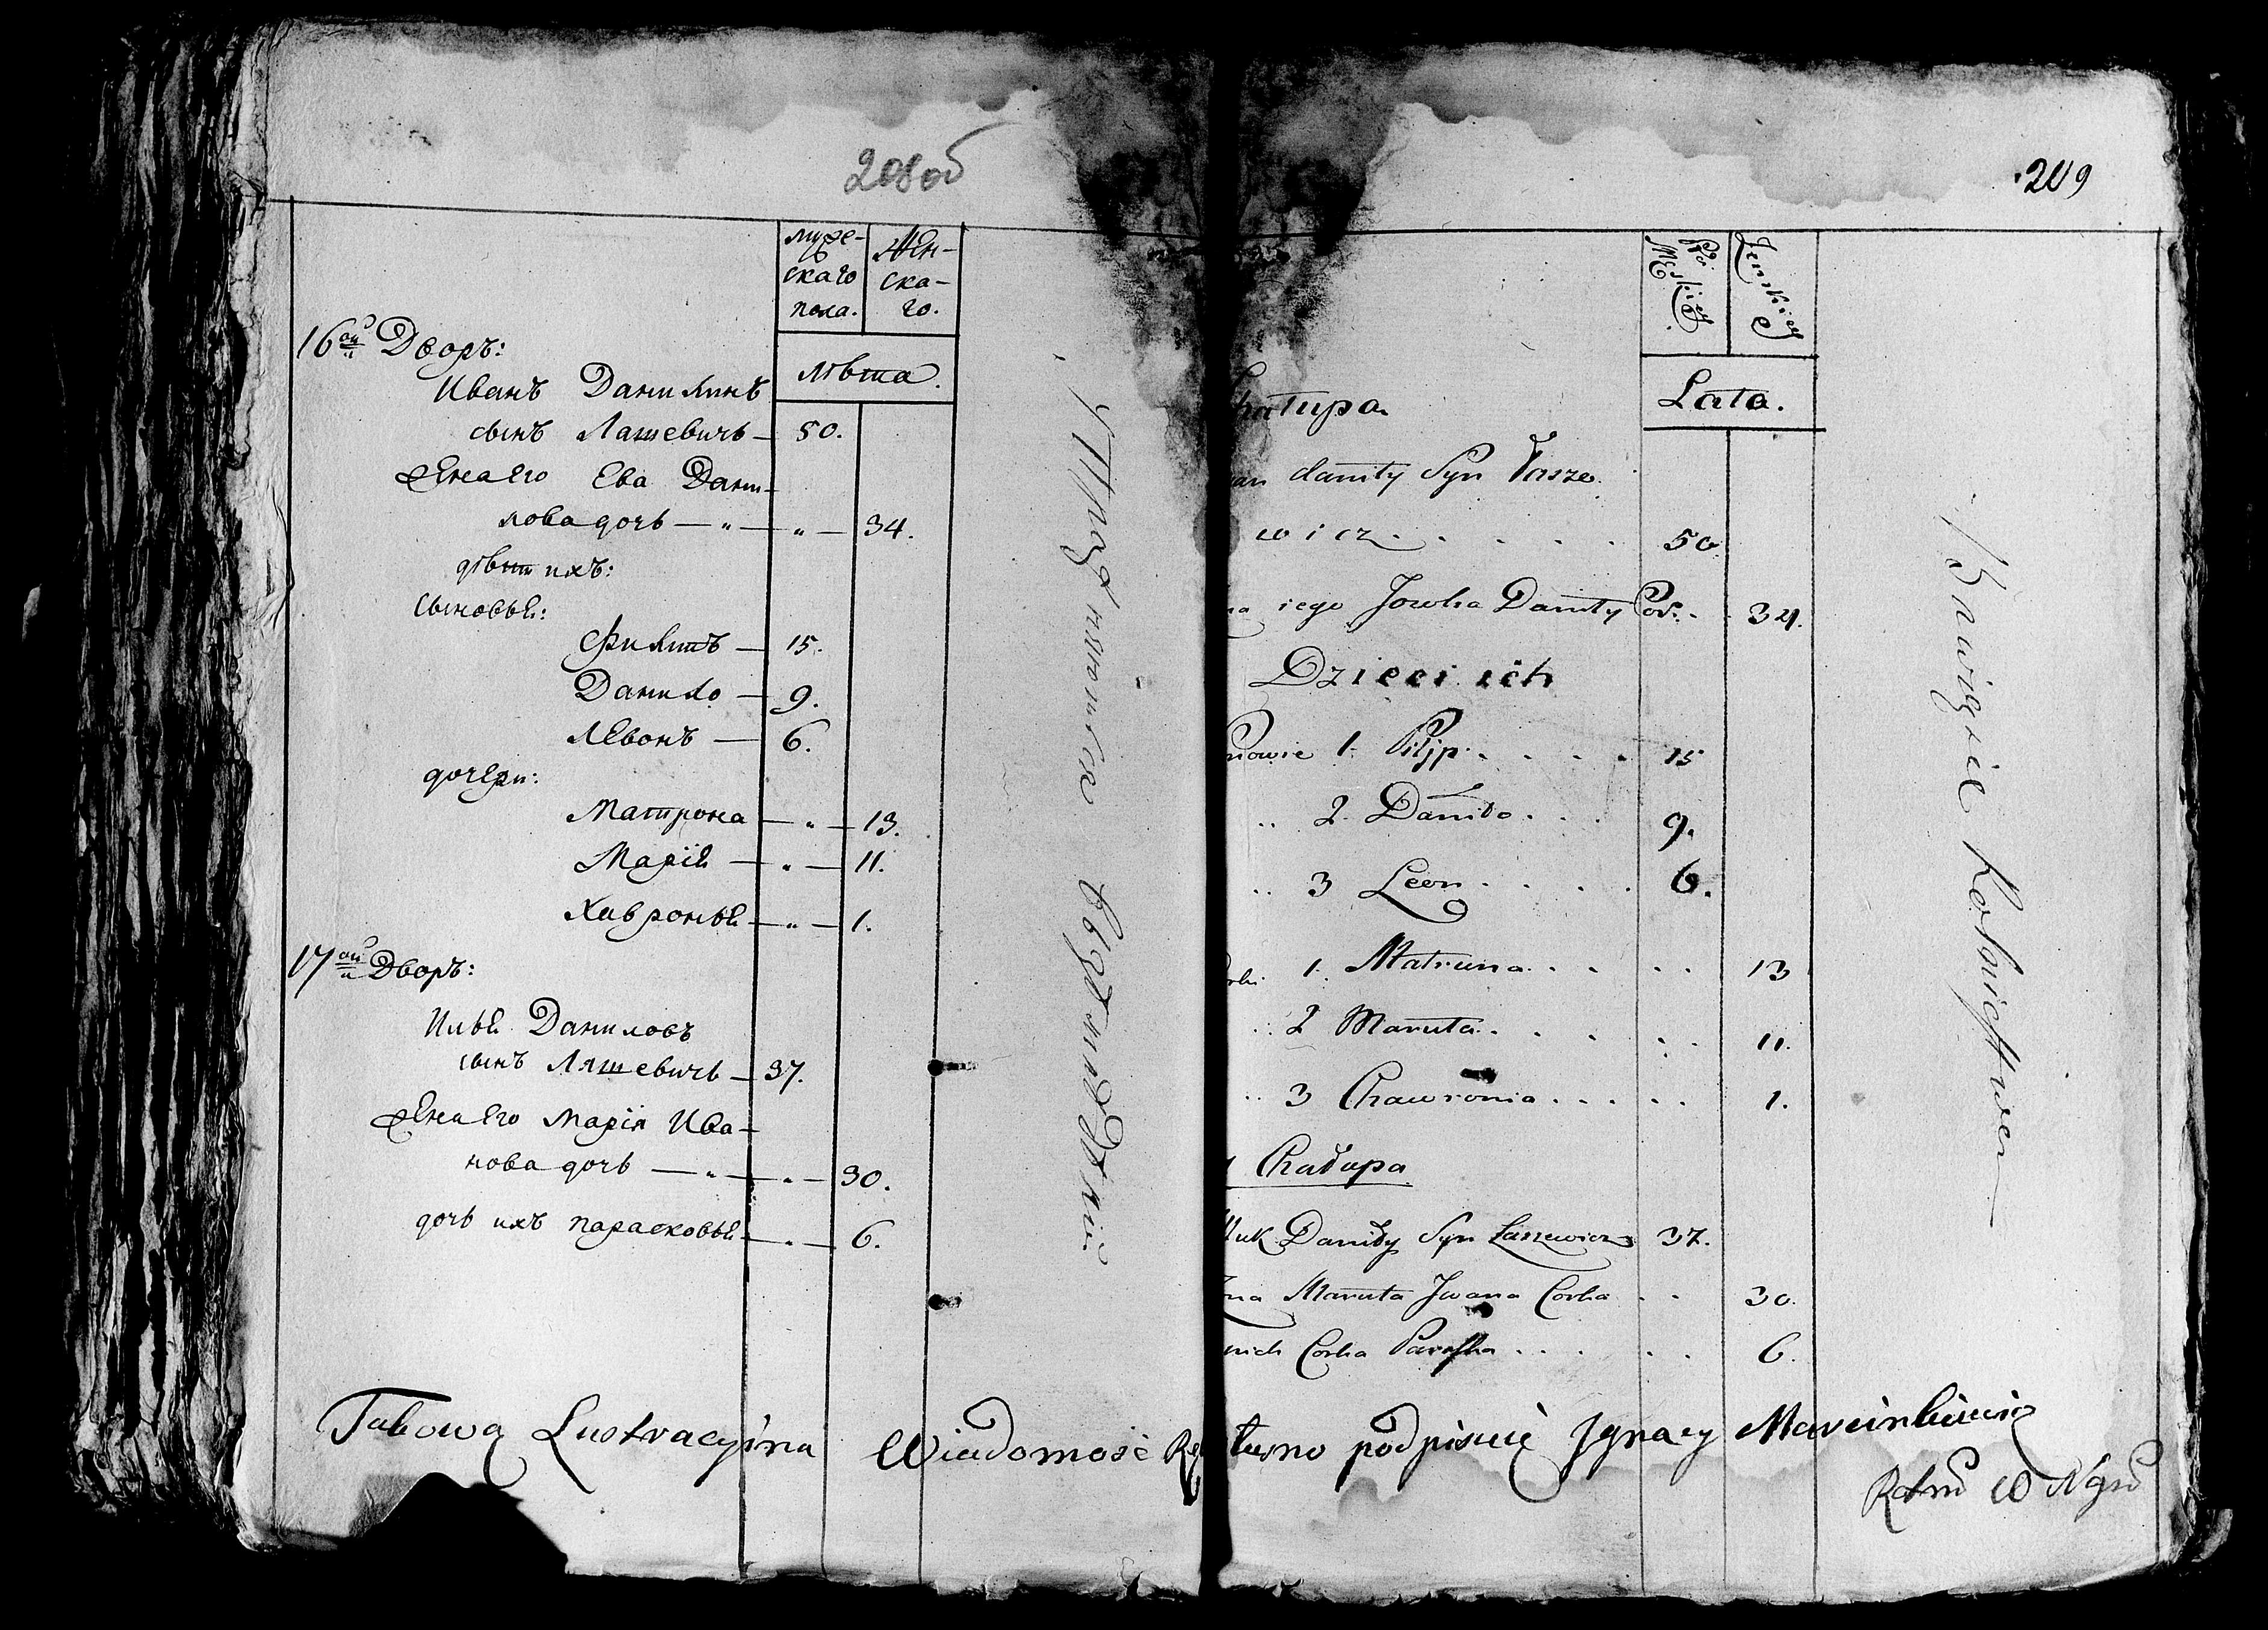 208об
муже-
скаго
пола.
Жен-
ска-
го.
лѣта.
16ой Дворъ:
Иванъ Данилинъ
сынъ Лашевичь — 50.
жена его Ева Дани-
лова дочь — " — " — 34.
дѣти ихъ:
сыновья:
Филипъ — 15.
Данило — 9.
Левонъ — 6.
дочери:
Матрона — " — 13.
Марія — " — 11.
Хавронья — " — 1.
17ой Дворъ:
Илья Даниловъ
сынъ Ляшевичь — 37.
жена его Марія Ива-
нова дочь — " — " — 30.
дочь ихъ парасковья — " — 6.
Упражняются въ
209
Męskiey
Żenskiey
Lata.
hałupa
daniły Syn Łasze
wicz . . . . . 50
iego Jowka Daniły Cor. . 34.
Dzieci ich
nowie 1. Pilip . . . . 15
.. 2. Daniło . . . 9.
.. 3 Leon . . . . 6.
1. Matruna . . . . 13
.. 2 Maruta . . . . . 11.
.. 3 Chawronia . . . . . . 1.
Chałupa
Daniły Syn Łaszewicz 37.
Maruta Jwana Corka . . 30.
nich Corka Paraska . . . . . 6.
Bawiąsie Rolnictwem
Takową Lustracyina Wiadomość podpisuię Jgnacy Marcinkiewicz